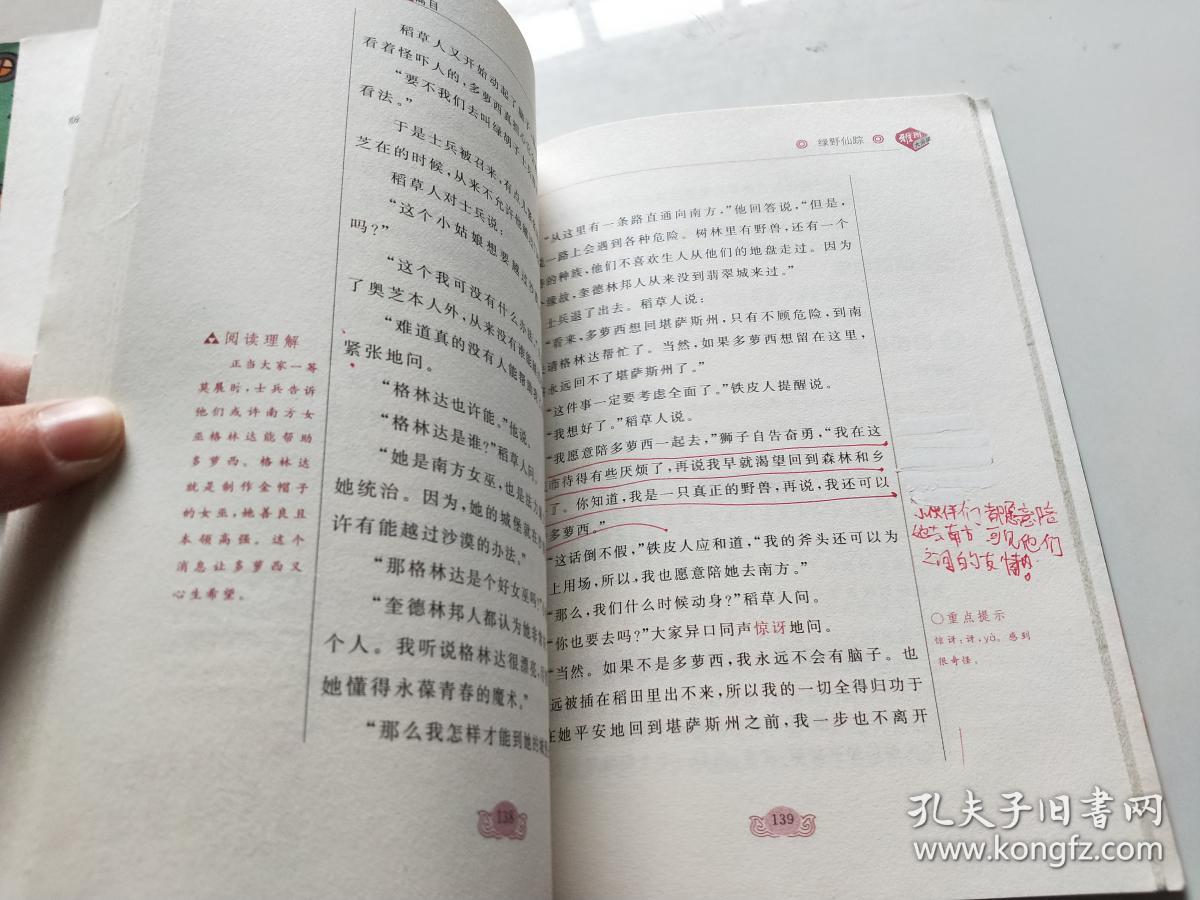 稻草人又开始动起了脑子
看着怪吓人的，多萝西真
“要不我们去叫绿胡子士兵
看法。”
于是士兵被召来，有点
芝在的时候，从来不允许他
稻草人对士兵说：
“这个小姑娘想要越过沙
吗？”
“这个我可没有什么办法，”
了奥芝本人外，从来没有谁能
“难道真的没有人能帮助我
紧张地问。
“格林达也许能。”他说。
“格林达是谁？”稻草人问。
“她是南方女巫，也是法力
她统治。因为，她的城堡就在
许有能越过沙漠的办法。”
“那格林达是个好女巫吗？”
“奎德林邦人都认为她非常
个人。我听说格林达很漂亮，
她懂得永葆青春的魔术。”
“那么我怎样才能到她的城
阅读理解
正当大家一筹
莫展时，士兵告诉
他们或许南方女
巫格林达能帮助
多萝西。格林达
就是制作金帽子
的女巫，她善良且
本领高强。这个
消息让多萝西又
心生希望。
138
绿野仙踪
“从这里有一条路直通向南方，”他回答说，“但是，
一路上会遇到各种危险。树林里有野兽，还有一个
的种族，他们不喜欢生人从他们的地盘走过。因为
缘故，奎德林邦人从来没到翡翠城来过。”
士兵退了出去。稻草人说：
“看来，多萝西想回堪萨斯州，只有不顾危险，到南
请格林达帮忙了。当然，如果多萝西想留在这里，
永远回不了堪萨斯州了。”
“这件事一定要考虑全面了。”铁皮人提醒说。
“我想好了。”稻草人说。
“我愿意陪多萝西一起去，”狮子自告奋勇，“我在这
市待得有些厌烦了，再说我早就渴望回到森林和乡
了。你知道，我是一只真正的野兽，再说，我还可以
多萝西。”
“这话倒不假，”铁皮人应和道，“我的斧头还可以为
上用场，所以，我也愿意陪她去南方。”
“那么，我们什么时候动身？”稻草人问。
“你也要去吗？”大家异口同声惊讶地问。
“当然。如果不是多萝西，我永远不会有脑子。也
远被插在稻田里出不来，所以我的一切全得归功于
在她平安地回到堪萨斯州之前，我一步也不离开
小伙伴们都愿意陪
她去南方 可见他们
之间的友情。
重点提示
惊讶：讶，yà。感到
很奇怪。
139
孔夫子旧书网
www.kongfz.com